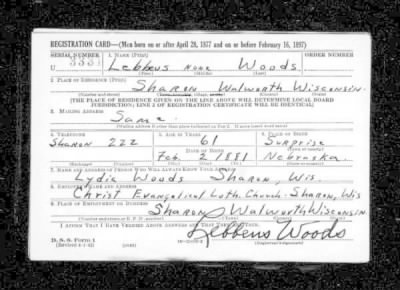 REGISTRATION CARD—(Men born on or after April 28, 1877 and on or before February 16, 1897)
SERIAL NUMBER 1. NAME (Print) ORDER NUMBER
U Lebbeus none Woods
(First) (Middle) (Last)
2. PLACE OF RESIDENCE (Print)
Sharon Walworth Wisconsin
(Number and street) (Town, township, village, or city) (County) (State)
[THE PLACE OF RESIDENCE GIVEN ON THE LINE ABOVE WILL DETERMINE LOCAL BOARD
JURISDICTION; LINE 2 OF REGISTRATION CERTIFICATE WILL BE IDENTICAL]
3. MAILING ADDRESS
Same
[Mailing address if other than place indicated on line 2. If same insert word same]
4. TELEPHONE 5. AGE IN YEARS 6. PLACE OF BIRTH
Sharon 222 61 Surprise
DATE OF BIRTH (Town or county)
Feb. 2 1881 Nebraska
(Exchange) (Number) (Mo.) (Day) (Yr.) (State or country)
7. NAME AND ADDRESS OF PERSON WHO WILL ALWAYS KNOW YOUR ADDRESS
Lydia Woods Sharon, Wis
8. EMPLOYER'S NAME AND ADDRESS
Christ Evangelical Luth. Church - Sharon, Wis
9. PLACE OF EMPLOYMENT OR BUSINESS
Sharon Walworth Wisconsin
(Number and street or R. F. D. number) (Town) (County) (State)
I AFFIRM THAT I HAVE VERIFIED ABOVE ANSWERS AND THAT THEY ARE TRUE.
Lebbeus Woods
D. S. S. Form 1
(Revised 4-1-42) (over) (Registrant's signature)